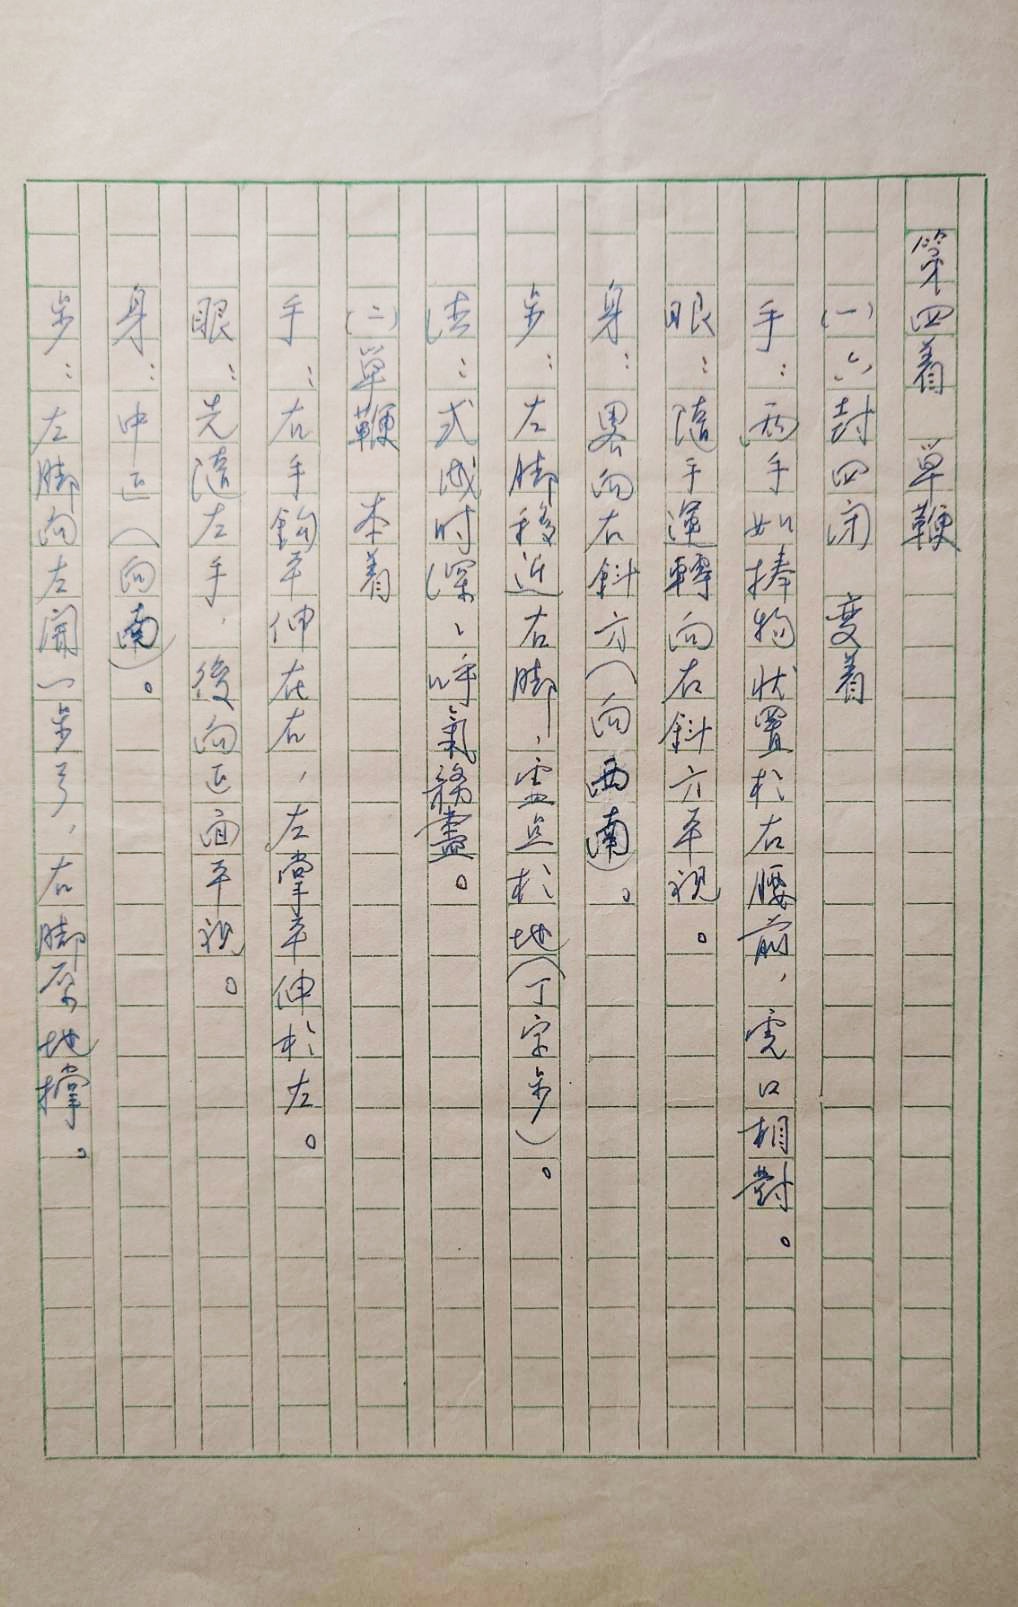 第四着　單鞭
(一)六封四闭　变着
手：兩手如捧物狀置於右腰前，虎口相對。
眼：隨手運轉向右斜方平視。
身：畧向右斜方（向西南）。
步：左脚移近右脚，虚点於地（丁字步）。
法：式成时深深呼氣務盡。
(二)單鞭　本着
手：右手鈎平伸在右，左掌平伸於左。
眼：先隨左手，後向正面平視。
身：中正（向南）。
步：左脚向左開一步弓，右脚原地撑。